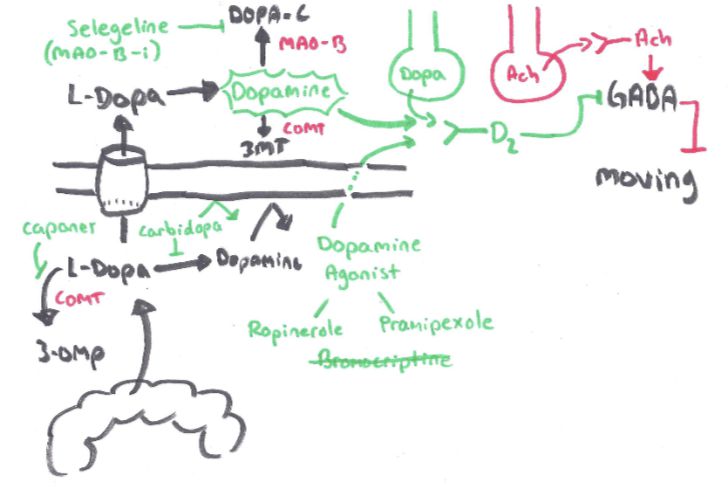 DOPA-C
Selegeline
(MAO-B-i)
MAO-B
L-Dopa
Dopamine
COMT
3MT
Dopa
Ach
Ach
D2
GABA
moving
caponer
carbidopa
L-Dopa
Dopamine
COMT
3-OMP
Dopamine
Agonist
Ropinerole
Pramipexole
Bromocriptine